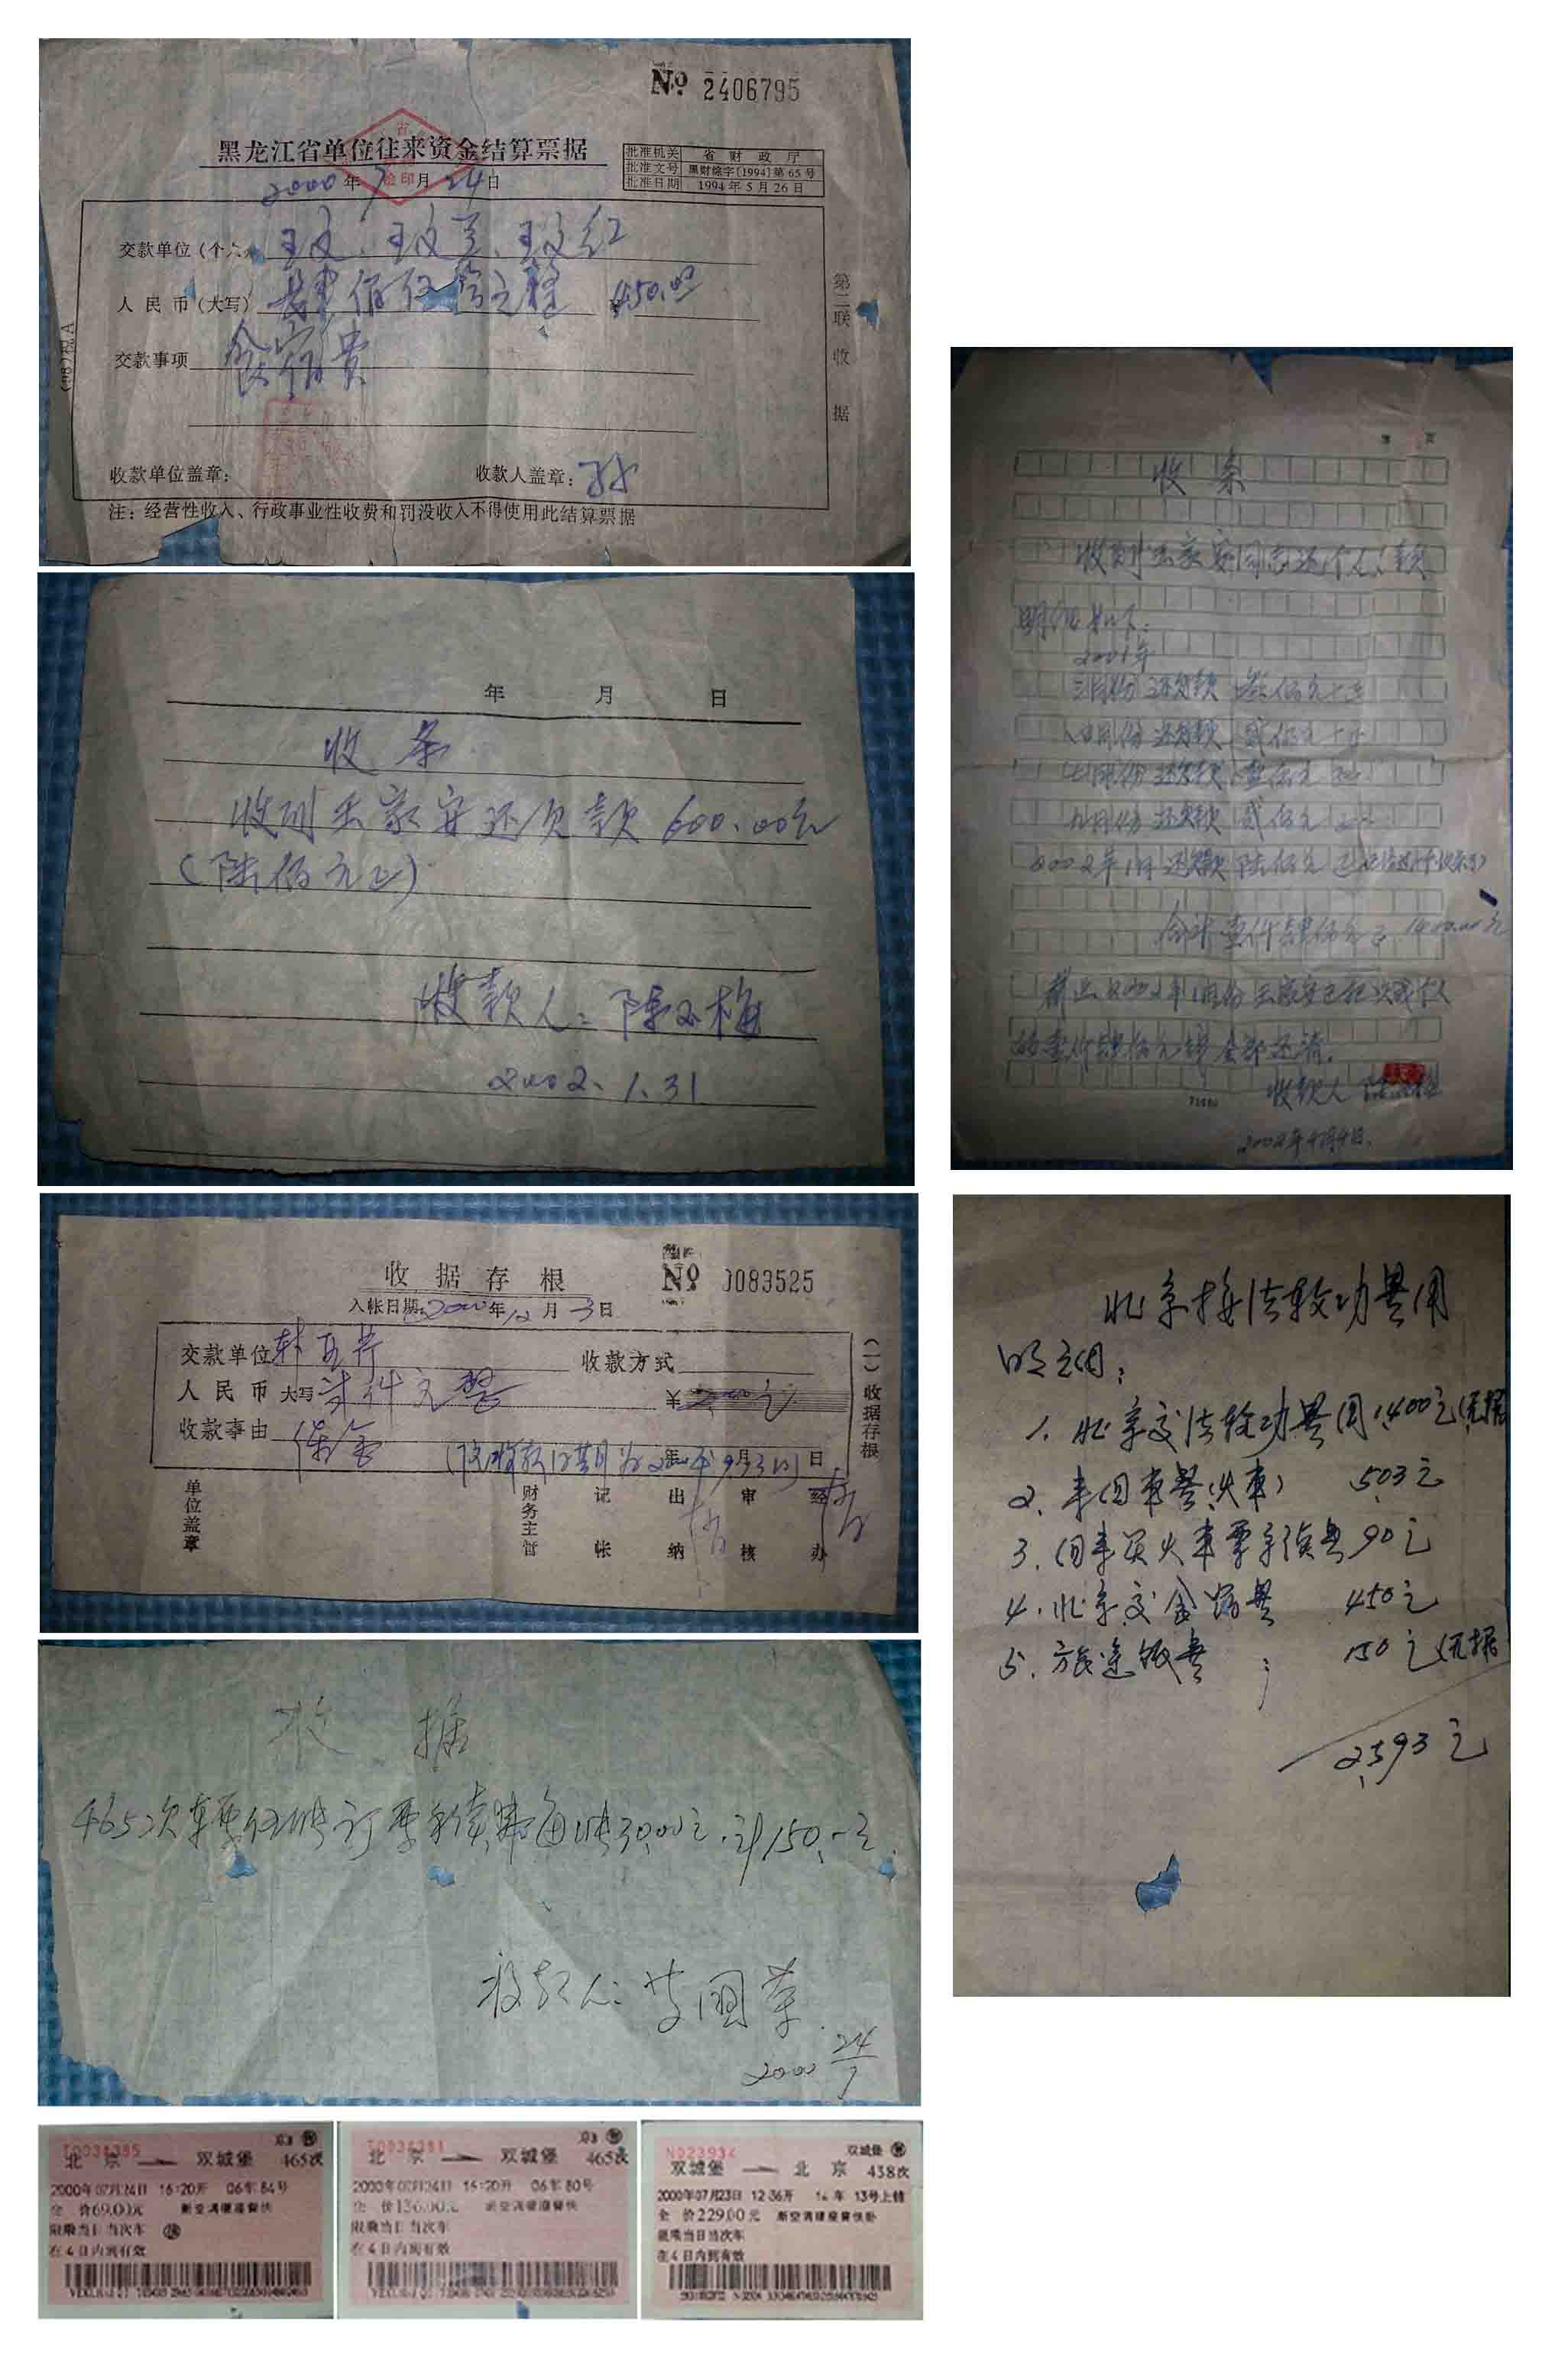 No 2406795
黑龙江省单位往来资金结算票据
批准机关 省财政厅
批准文号 黑财综字〔1994〕第65号
批准日期 1994年5月26日
2000年7月24日
交款单位(个人) 王文、王文兰、王文红
人民币(大写) 肆佰伍拾元整 ¥450.00
交款事项 食宿费
第二联 收据
收款单位盖章:
收款人盖章:
注:经营性收入、行政事业性收费和罚没收入不得使用此结算票据
年 月 日
收条
收到王家安还欠款600.00元
(陆佰元正)
收款人:陈玉梅
2002.1.31
收据存根
No 0083525
入帐日期:2000年12月3日
交款单位
收款方式
人民币大写 贰仟元整
收款事由 保金
(一)收据存根
单位盖章
财务主管 记帐 出纳 审核 经办
收据
465次车票伍张订票手续费每张30.00元.计150.-元.
收款人:
2000 24/7
北京 双城堡 465次
2000年07月24日 16:20开 06车84号
全价69.00元 新空调硬座普快
限乘当日当次车
在4日内到有效
北京 双城堡 465次
2000年07月24日 16:20开 06车80号
全价136.00元 新空调硬座普快
限乘当日当次车
在4日内到有效
N023934
双城堡
双城堡 北京 438次
2000年07月23日 12:36开 14车 13号上铺
全价229.00元 新空调硬座普快卧
限乘当日当次车
在4日内到有效
收条
收到王家安同志还个人欠款
明细如下:
2001年
还欠款 叁佰元正
还欠款 贰佰元正
还欠款 壹佰元正
九月份 还欠款 贰佰元正
2002年1月还欠款陆佰元正
合计壹仟肆佰元正 1400.00元
的壹仟肆佰元钱全部还清.
收款人
2002年4月4日.
北京接法轮功费用
明细:
1.北京交法轮功费用1400元(无据
2.来回车费(火车) 503元
3.回来买火车票手续费90元
4.北京交食宿费 450元
5.旅途饭费; 150元(无据
2593元